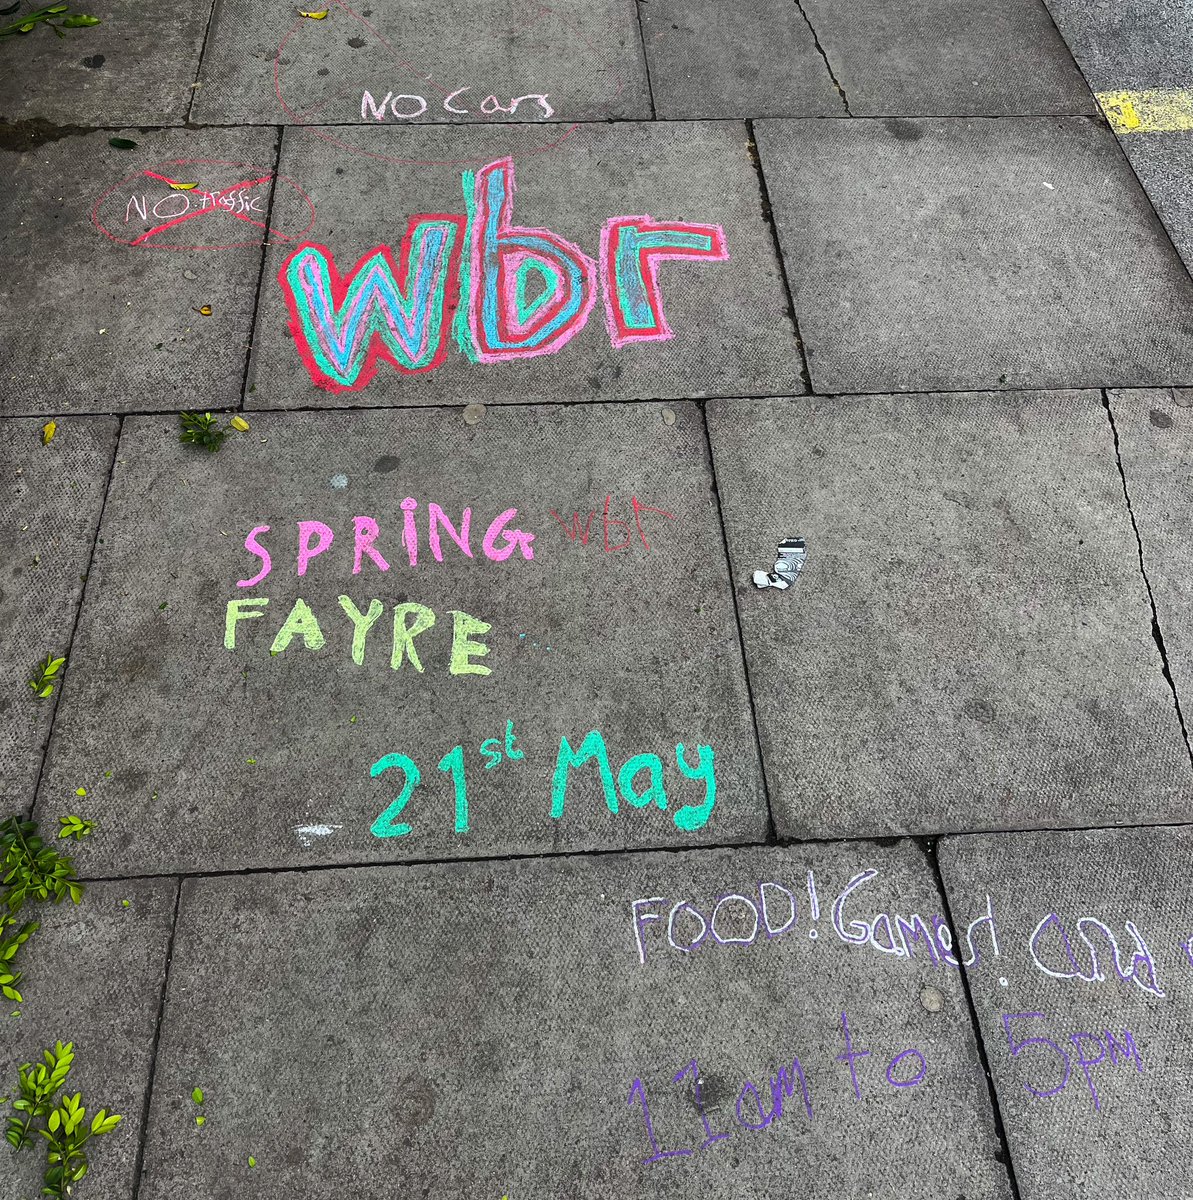 NO Cars
NO traffic
wbr
SPRING wbr
FAYRE
21st May
FOOD! Games! and
11am to 5pm